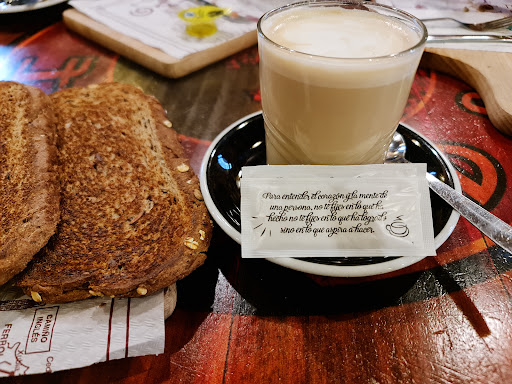 Para entender el corazón y la mente de
una persona, no te fijes en lo que ha
hecho no te fijes en lo que ha logrado
sino en lo que aspira a hacer.
CAMIÑO
INGLÉS
FERRO